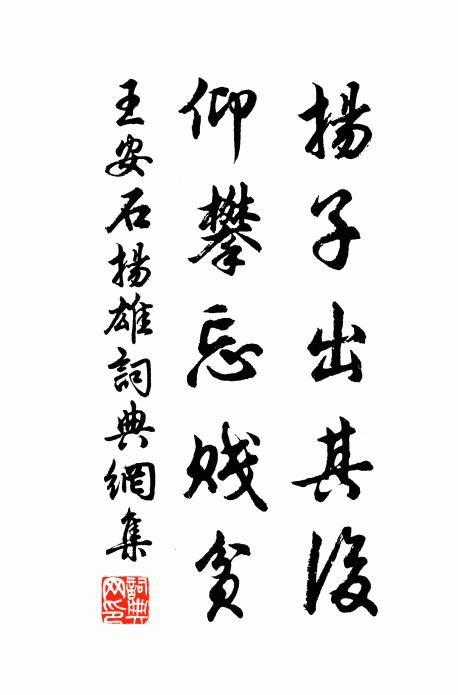 揚子出其後
仰攀忘賤貧
王安石揚雄詞典網集
詞典网印